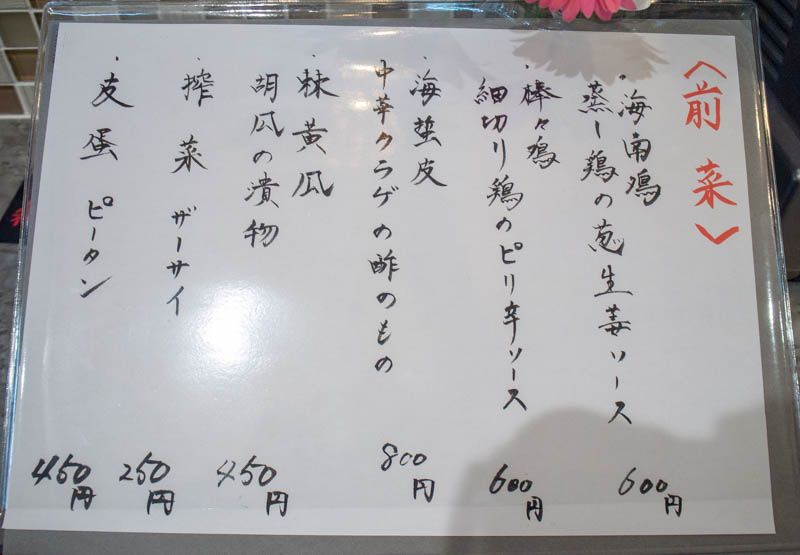 〈前菜〉
・海南鸡
蒸し鶏の葱生姜ソース
600円
・棒々鸡
細切り鶏のピリ辛ソース
600円
・海蜇皮
中華クラゲの酢のもの
800円
・黄瓜
胡瓜の漬物
450円
・搾菜 ザーサイ
250円
・皮蛋 ピータン
450円